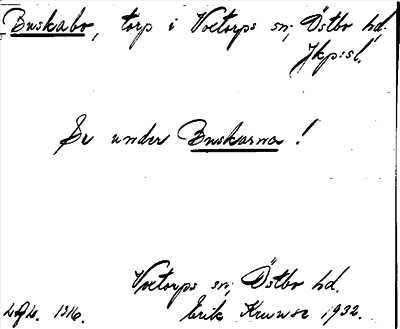 Buskabo, torp i Voxtorps sn, Östbo hd,
Jkp:s l.
Se under Buskarna!
Voxtorps sn, Östbo hd.
1316. Erik Kruuse 1932.